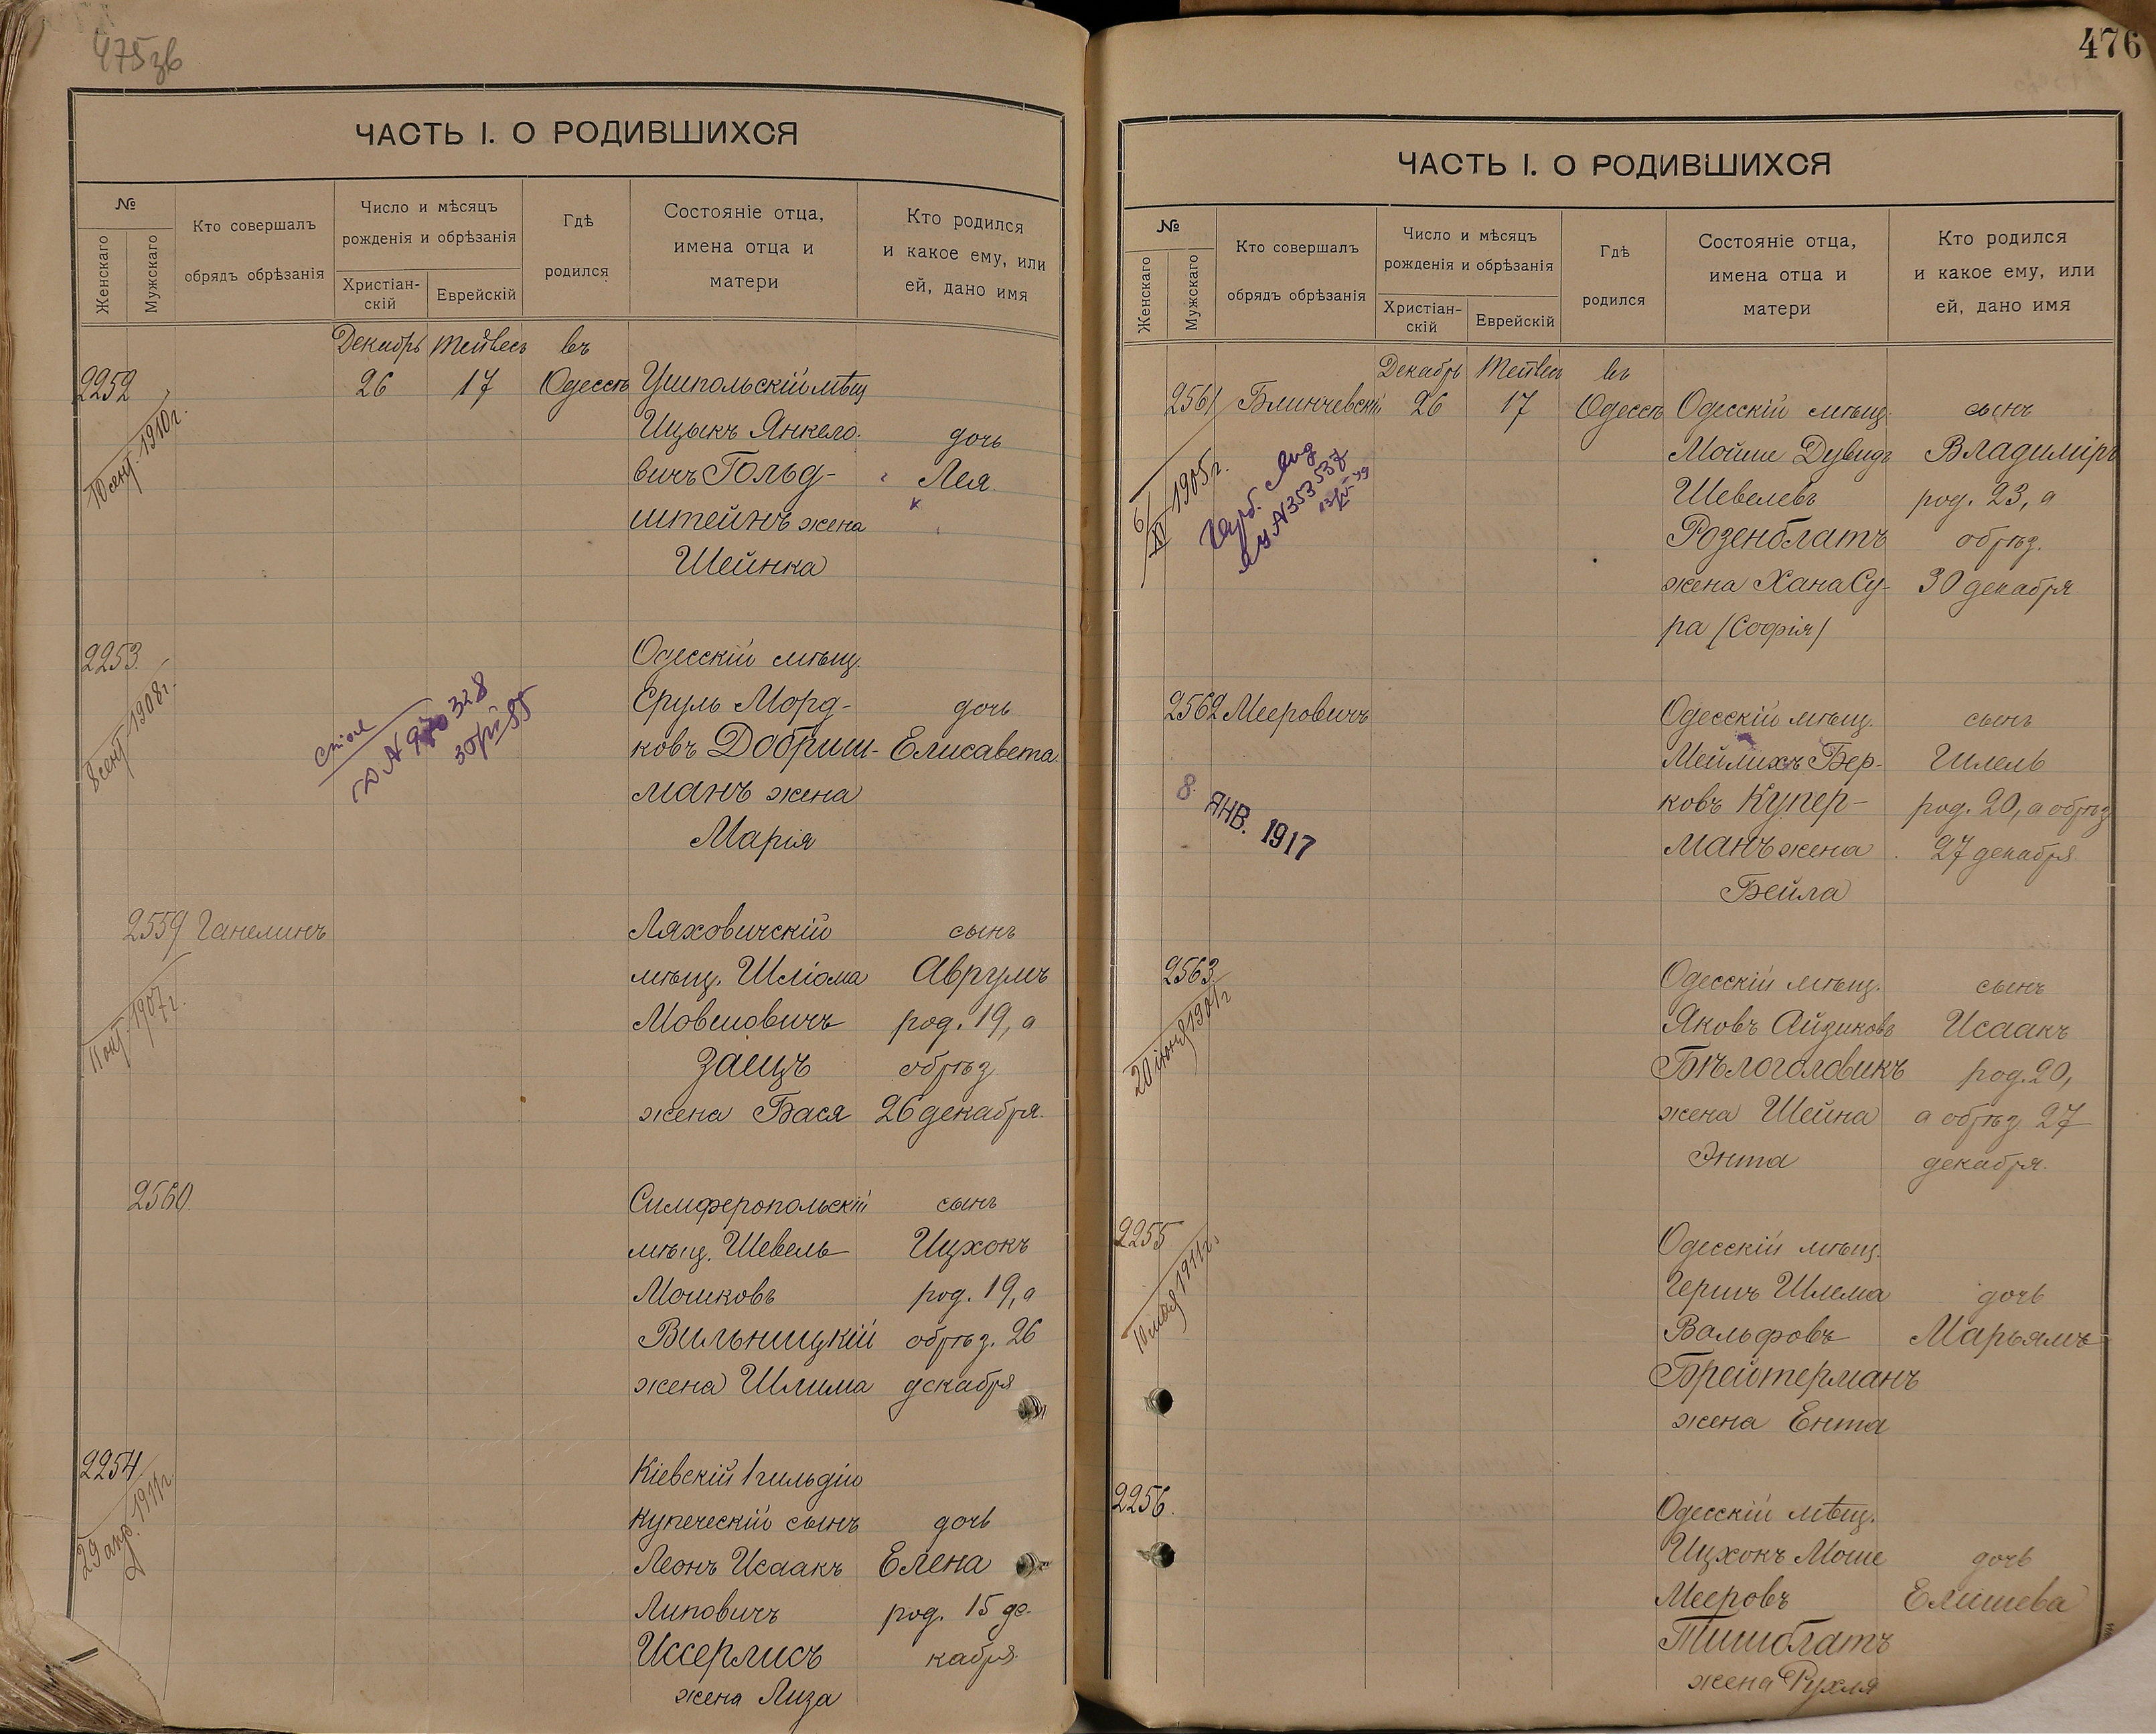 475зв
ЧАСТЬ I. О РОДИВШИХСЯ
№
Женскаго
Мужскаго
Кто совершалъ
обрядъ обрѣзанія
Число и мѣсяцъ
рожденія и обрѣзанія
Христіан-
скій
Еврейскій
Гдѣ
родился
Состояніе отца,
имена отца и
матери
Кто родился
и какое ему, или
ей, дано имя
Декабрь Тейвесъ въ
2252 26 17 Одессѣ Ушпольскій мѣщ
10 сент. 1910 г.
Ицыкъ Янкело-
вичъ Гольд-
штейнъ жена
Шейнка
дочь
Лея
2253
8 сент. 1908 г.
328
Одесскій мѣщ.
Сруль Морд-
ковъ Добриш-
манъ жена
Марія
дочь
Елисавета
2559 Ганелинъ
1907 г.
Ляховичскій
мѣщ. Шліома
Мовшовичъ
Заецъ
жена Бася
сынъ
Аврумъ
род. 19, а
обрѣз
26 декабря.
2560
Симферопольскій
мѣщ. Шевель
Мошковъ
Вильницкій
жена Шлима
сынъ
Ицхокъ
род. 19, а
обрѣз. 26
декабря
2254
29 апр. 1911 г.
Кіевскій 1 гильдіи
купеческій сынъ
Леонъ Исаакъ
Липовичъ
Иссерлисъ
жена Лиза
дочь
Елена
род. 15 де-
кабря
476
ЧАСТЬ I. О РОДИВШИХСЯ
№
Женскаго
Мужскаго
Кто совершалъ
обрядъ обрѣзанія
Число и мѣсяцъ
рожденія и обрѣзанія
Христіан-
скій
Еврейскій
Гдѣ
родился
Состояніе отца,
имена отца и
матери
Кто родился
и какое ему, или
ей, дано имя
Декабрь Тейвесъ въ
2561 Блинчевскій 26 17 Одессѣ
6/XI 1905 г.
№ 353537
Одесскій мѣщ.
Мойше Дувидъ
Шевелевъ
Розенблатъ
жена Хана Су-
ра (Софія)
сынъ
Владиміръ
род. 23, а
обрѣз.
30 декабря
2562 Мееровичъ
8 ЯНВ. 1917
Одесскій мѣщ.
Мейлихъ Бер-
ковъ Купер-
манъ жена
Бейла
сынъ
Шлель
род. 20, а обрѣз
27 декабря
2563
20 іюня 1901 г
Одесскій мѣщ.
Яковъ Айзиковъ
Бѣлоголовикъ
жена Шейна
Энта
сынъ
Исаакъ
род. 20,
а обрѣз 27
декабря.
2255
10 мая 1911 г.
Одесскій мѣщ.
Гершъ Шлема
Вольфовъ
Брейтерманъ
жена Ента
дочь
Марьямъ
2256
Одесскій мѣщ.
Ицхокъ Моше
Мееровъ
Тишблатъ
жена Рухля
дочь
Елишева